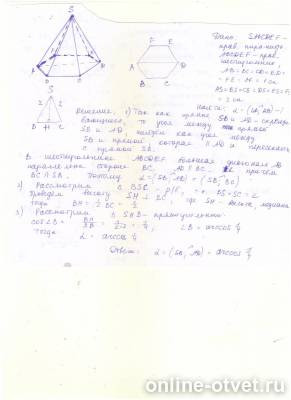 S
F E
A D
B C
Дано: SABCDEF –
прав. пирамида
ABCDEF – прав.
шестиугольник
AB = BC = CD = ED =
= FE = AF = 1 см
AS = BS = CS = DS = ES = FS
= 2 см
Найти: (SB, AD) – ?
S
2 2
B H C
Решение: 1) Так как прямые SB и AD – скрещи-
вающиеся, то угол между прямой
SB и AD, найдем как угол между
SB и прямой которая ∥ AD и пересекает
прямую SB.
В шестиугольнике ABCDEF большая диагональ AD
параллельна стороне BC, AD ∥ BC, причем
BC ∩ SB. Поэтому α = (SB, AD) = (SB, BC)
2) Рассмотрим Δ BSC – р/б, т.к. BS = SC = 2
Проведем высоту SH ⊥ BC, где SH – высота, медиана
тогда BH = ½ BC = ½
3) Рассмотрим Δ SHB – прямоугольный
cos∠B = BH/SB = ¼ ∠B = arccos ¼
тогда α = arccos ¼
Ответ: α = (SB, AD) = arccos ¼
online-otvet.ru